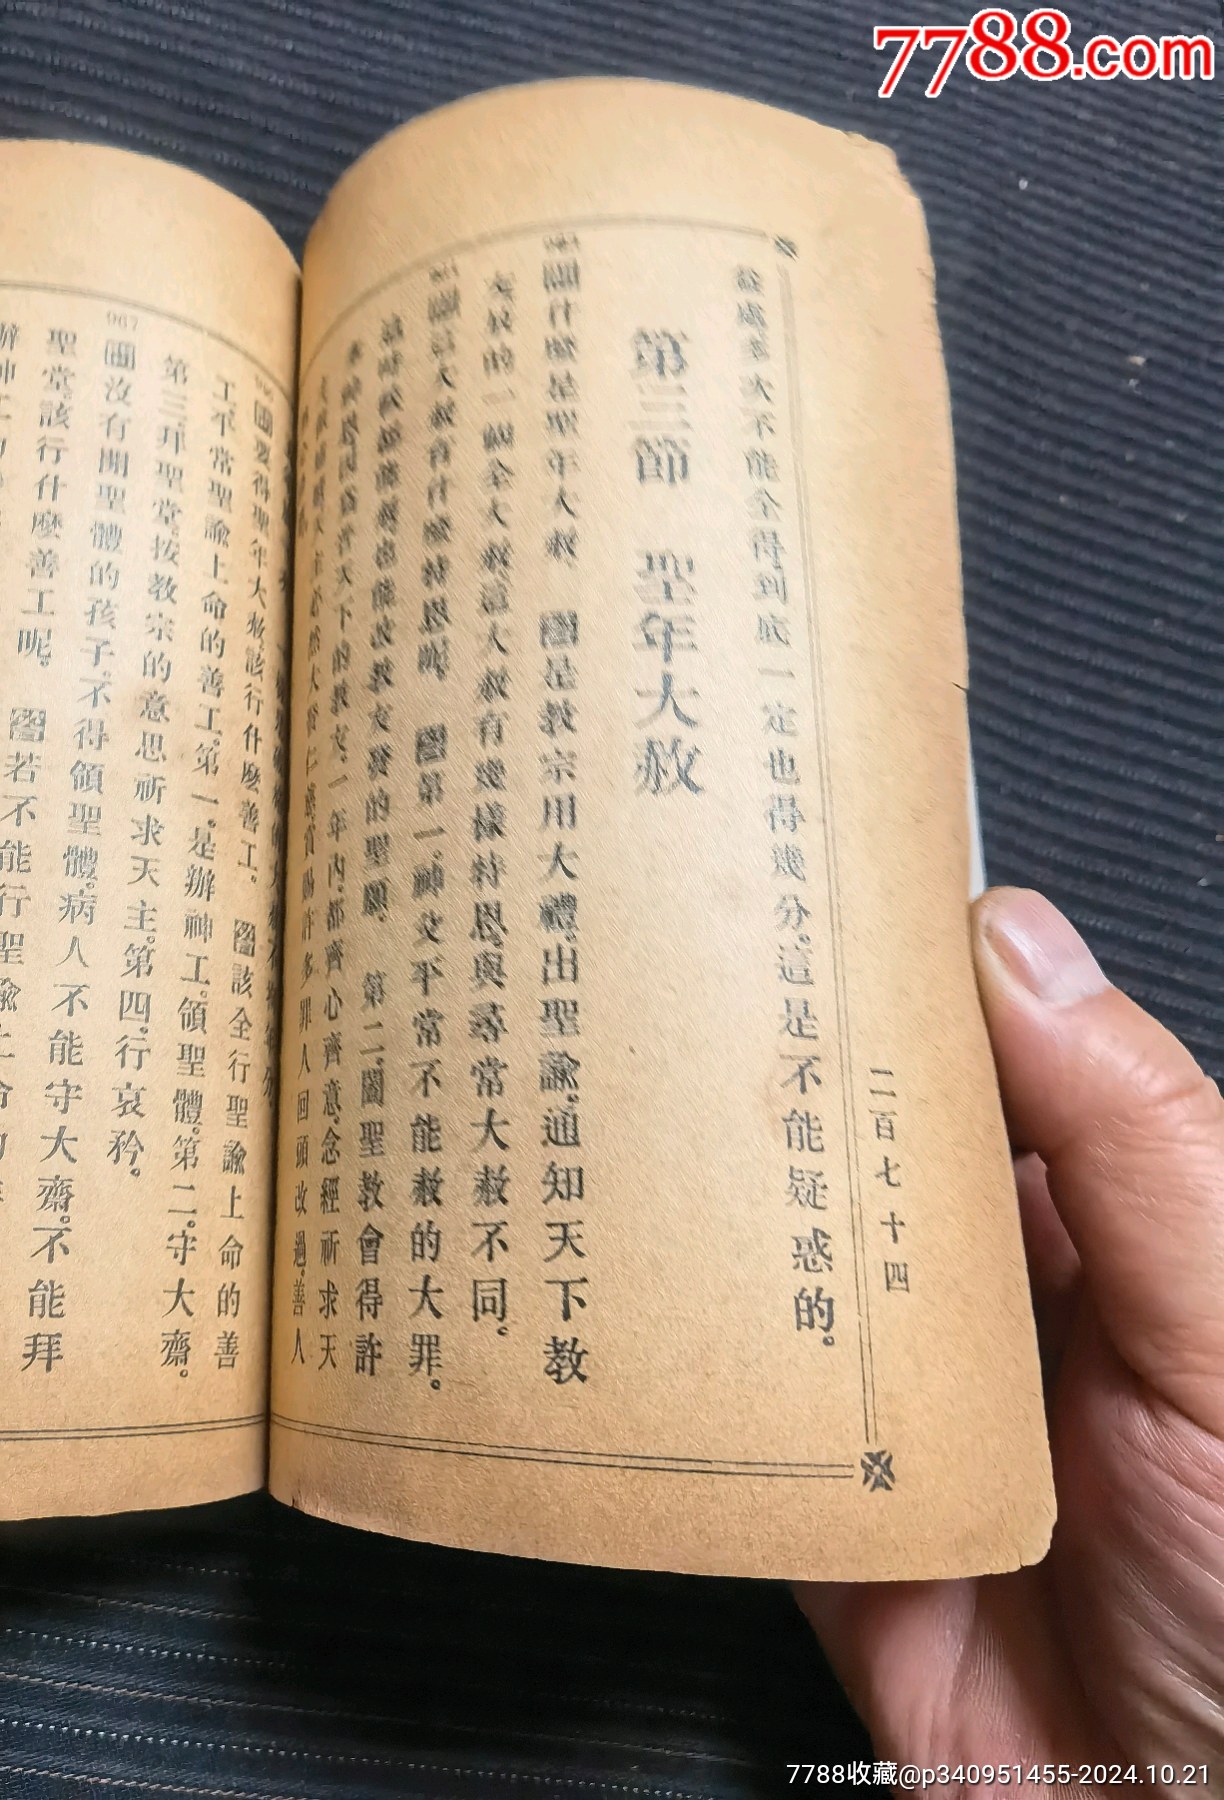 7788.com
益處多次不能全得到底一定也得幾分。這是不能疑惑的。
第三節 聖年大赦
問什麼是聖年大赦 答是教宗用大禮。出聖諭。通知天下教
友發的一個全大赦這大赦有幾樣特恩。與尋常大赦不同。
問這大赦有什麼特恩呢。 答第一。神父平常不能赦的大罪。
這時候 教友發的聖願。 第二。闔聖教會得許
天下的教友。一年內。都齊心齊意。念經祈求天
天主必然大 仁慈賞賜許多罪人回頭改過。善人
二百七十四
問要得聖年大赦。該行什麼善工。 答該全行聖諭上命的善
工。平常聖諭上命的善工。第一。是辦神工。領聖體。第二。守大齋。
第三。拜聖堂。按教宗的意思祈求天主。第四。行哀矜。
967 問沒有開聖體的孩子。不得領聖體。病人不能守大齋。不能拜
聖堂。該行什麼善工呢。 答若不能行聖諭上命的
7788收藏@p340951455-2024.10.21